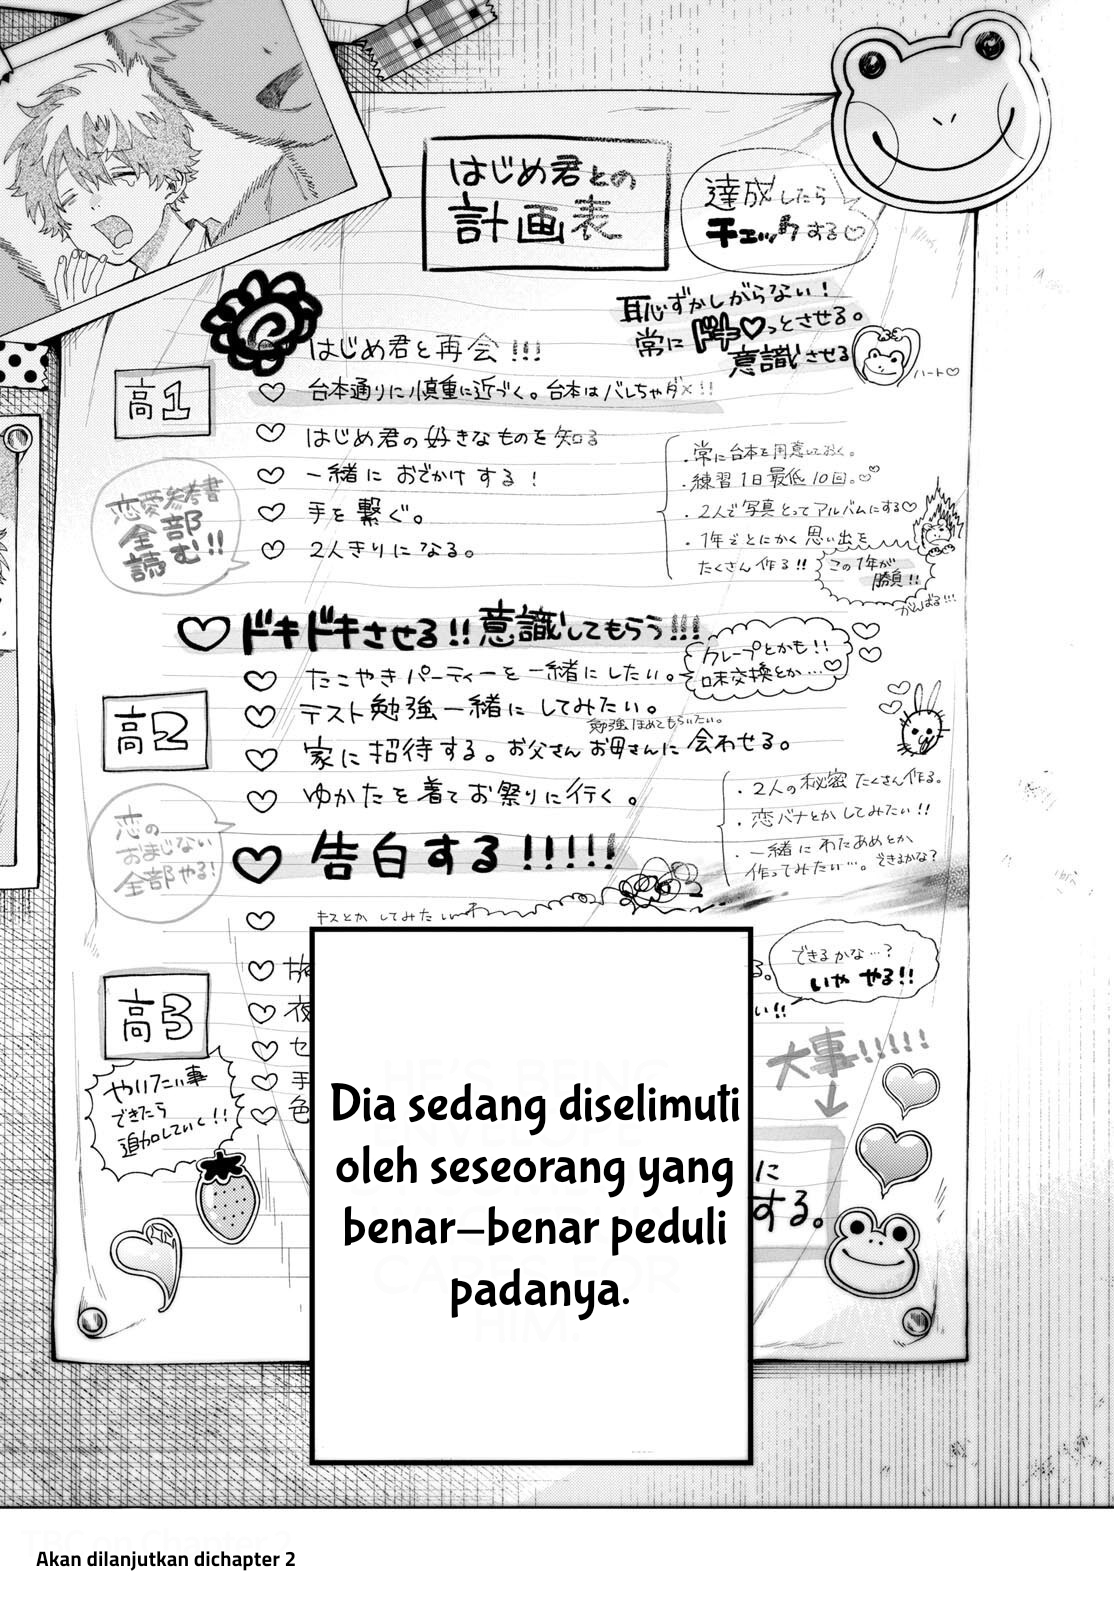 はじめ君との
計画表
達成したら
チェックする♡
恥ずかしがらない！
常にドキ♡っとさせる。
意識させる
ハート♡
はじめ君と再会!!!
高1
♡ 台本通りに慎重に近づく。台本はバレちゃダメ!!
♡ はじめ君の好きなものを知る
♡ 一緒におでかけする！
♡ 手を繋ぐ。
♡ 2人きりになる。
恋愛参考書
全部
読む!!
・常に台本を用意しておく。
・練習1日最低10回。♡
・2人で写真とってアルバムにする♡
・1年ごとにかく思い出を
たくさん作る!!
この1年が
勝負!!
がんばる!!!
♡ドキドキさせる!!意識してもらう!!!
クレープとかも!!
味交換とか…♡
♡ たこやきパーティーを一緒にしたい。
♡ テスト勉強一緒にしてみたい。
勉強ほめてもらいたい。
高2
♡ 家に招待する。お父さんお母さんに会わせる。
♡ ゆかたを着てお祭りに行く。
・2人の秘密たくさん作る。
・恋バナとかしてみたい!!
・一緒にわたあめとか
作ってみたい…。できるかな？
恋の
おまじない
全部やる!
♡ 告白する!!!!!
♡ キスとかしてみたい
できるかな…？
いややる!!
高3
♡ 夜
い!!
♡ セ
♡ 手
♡ 色
大事!!!!!
やりたい事
できたら
追加していく!!
に
する。
Dia sedang diselimuti
oleh seseorang yang
benar-benar peduli
padanya.
Akan dilanjutkan dichapter 2